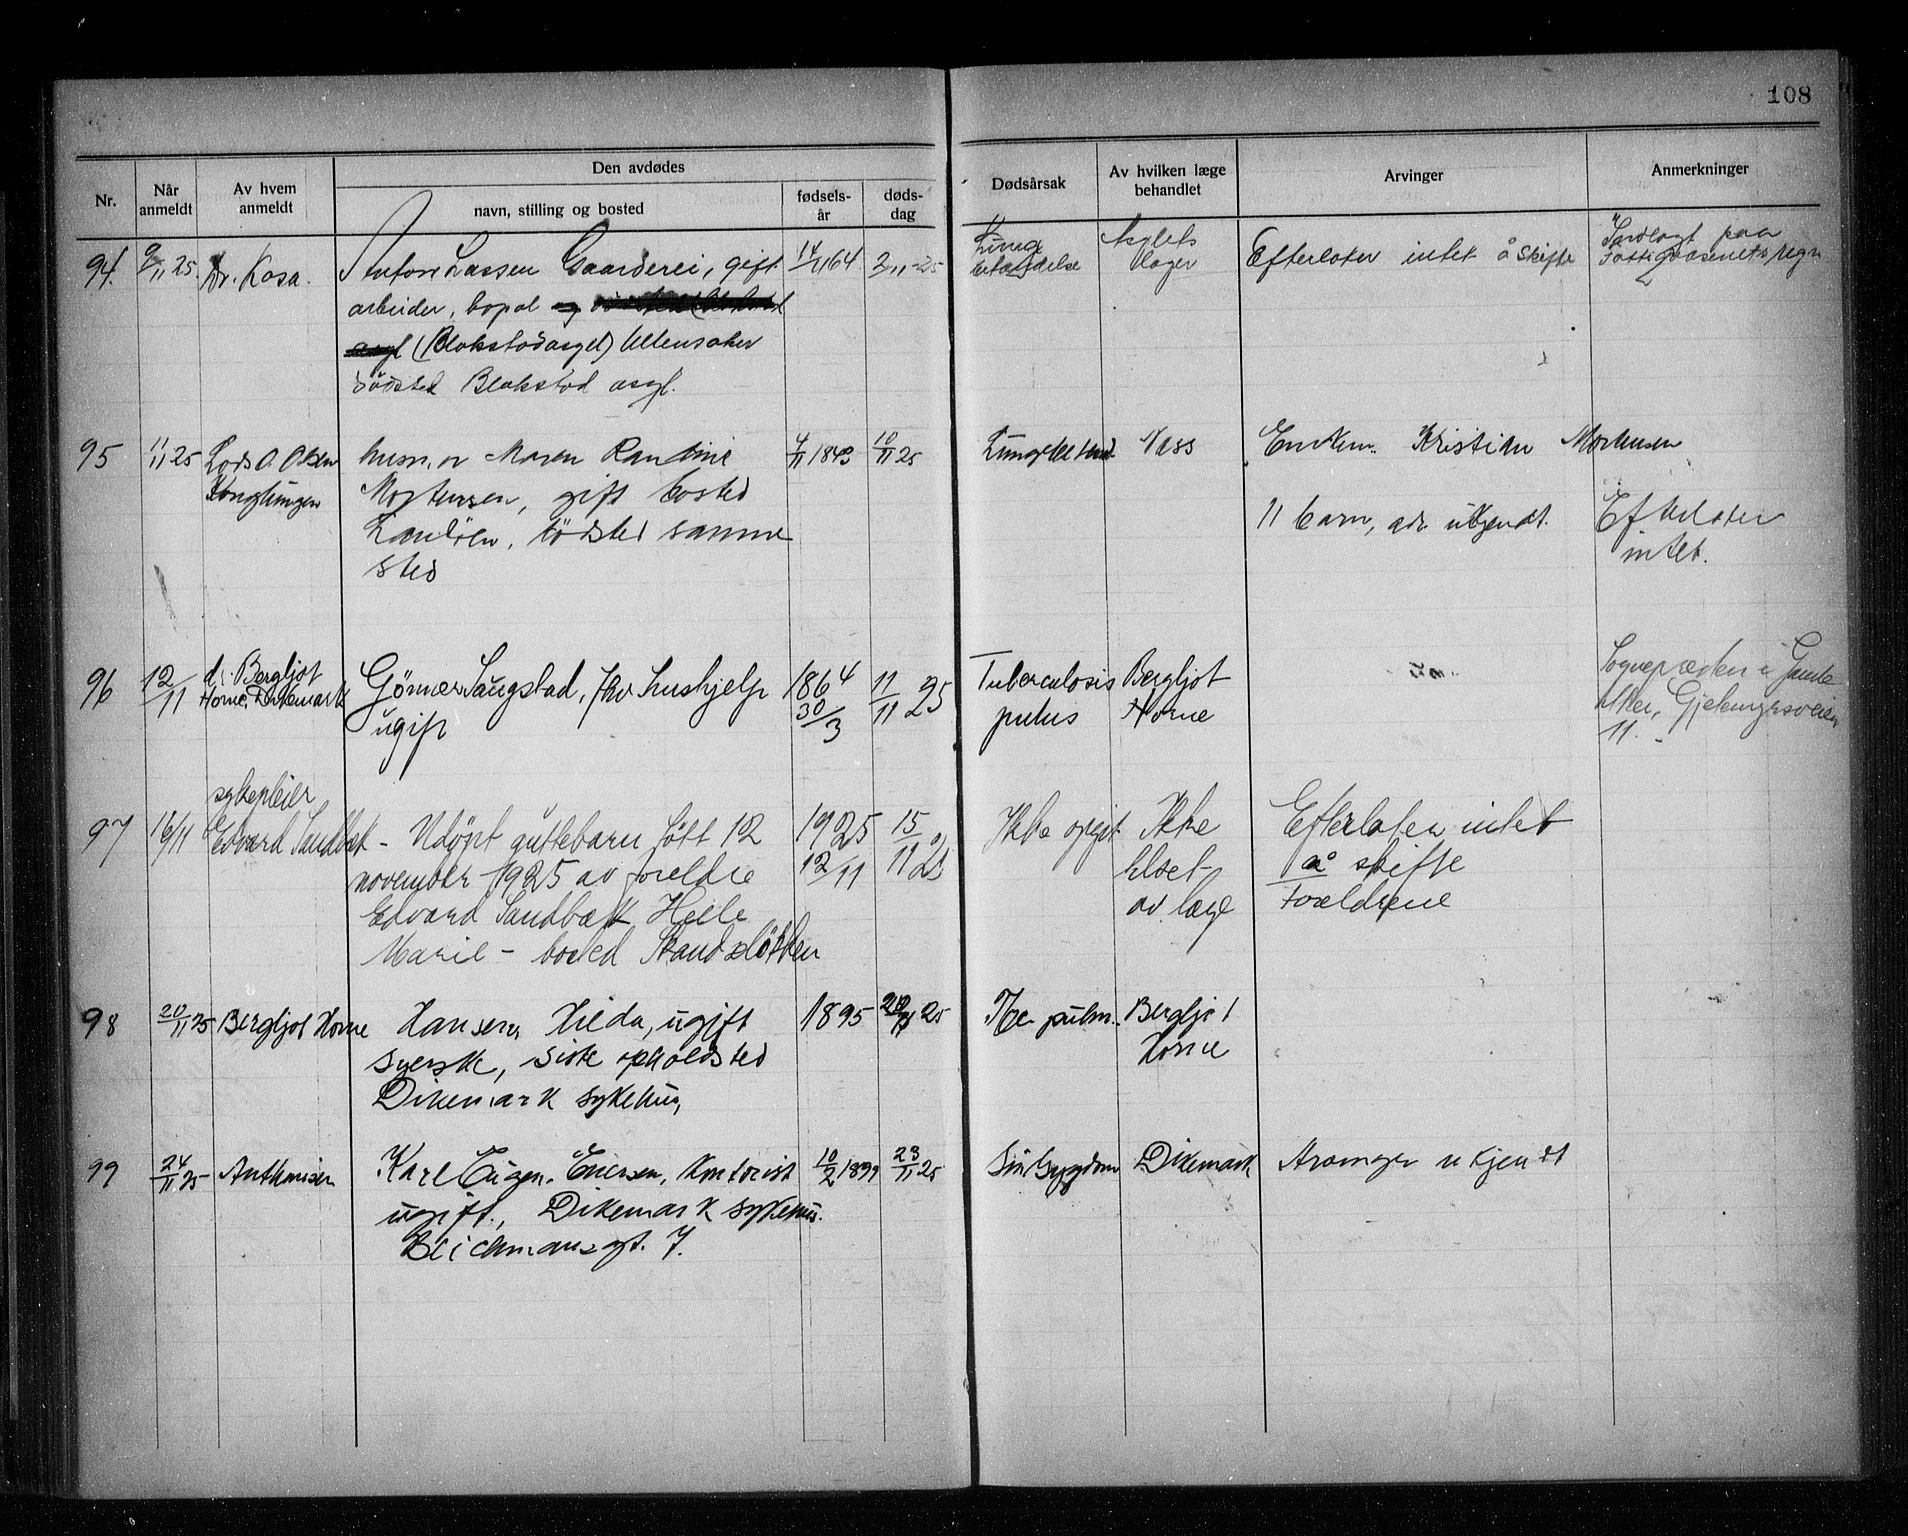 108
Nr.
Når anmeldt
Av hvem anmeldt
Den avdødes
navn, stilling og bosted
fødsels-år
døds-dag
Dødsårsak
Av hvilken læge behandlet
Arvinger
Anmerkninger
94.
9/11 25.
Dr. Kosa.
Anton Lassen Gaarderei, gift
arbeider, bopæl
(Blakstadasyl) Ullensaker
dödsted Blakstad asyl.
14/11 64
2/11-25
Lunge
betændelse
Asylets
læger
Efterlater intet å skifte
paa
95
11/11 25
Lods O. Olsen
Konglungen
Maren Randine
Mortensen, gift bosted
Landöen, dödsted samme
sted
10/11 25
Vass
Enkem. Kristian Mortensen
11 barn, adr. ukjendt.
Efterlater
intet.
96
12/11
dr. Bergljot
Horne, Dikemark
Saugstad, hushjelp
ugift
1864
30/3
11/11 25
Tuberculosis
Bergljot
Horne
Sognepresten i Gamle
Aker,
11.
97
16/11
sykepleier
Edvard Sandbæk
- Udöpt guttebarn født 12
november 1925 av foreldre
Edvard Sandbæk
Marie - bosted
1925
12/11
15/11 25
Ikke opgit
Ikke
tilset
av læge
Efterlater intet
å skifte
Foreldrene
98
20/11 25
Bergljot Horne
Hansen, Hilda, ugift
syerske, siste opholdsted
Dikemark sykehus,
1895
25
Tbc. pulm.
Bergljot
Horne
99
24/11 25
Anthonisen
Karl Eugen Ericsen, kontorist
ugift., Dikemark sykehus.
Beichmansgt. 7.
10/2 1899
23/11 25
Sinsygdom
Dikemark
Arvinger ukjendt